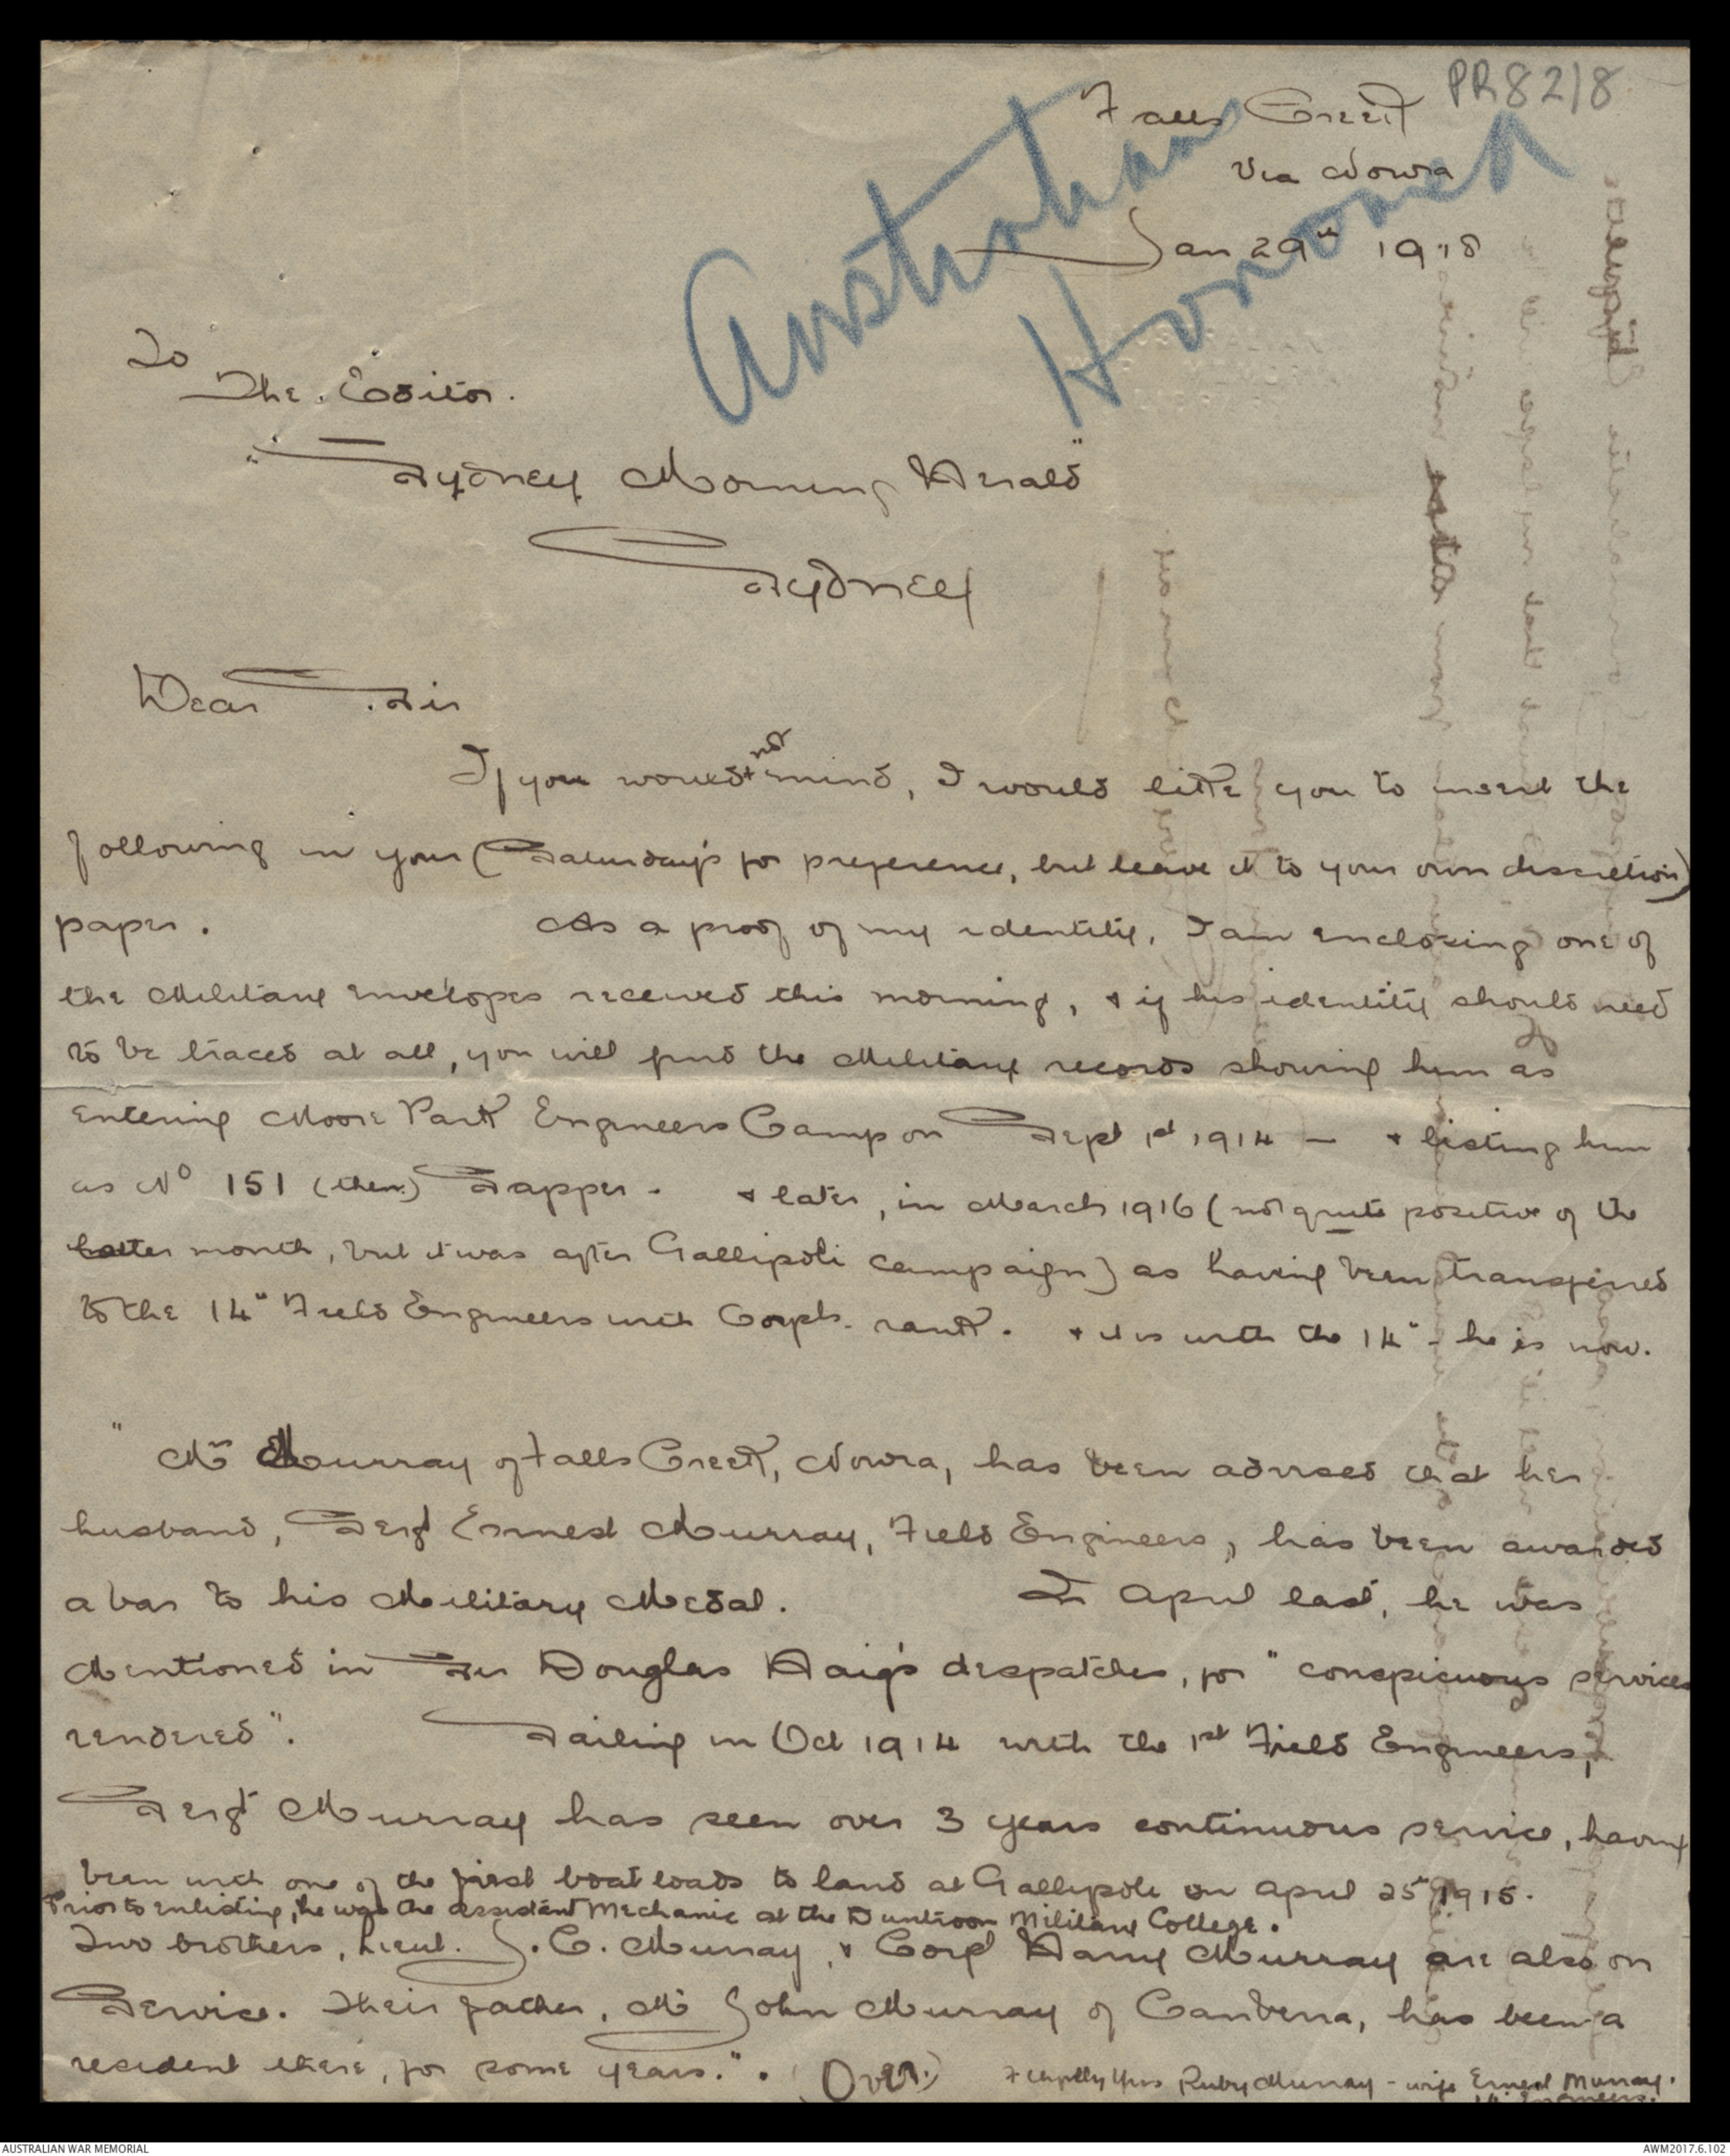 PR82/8
Falls Creek
Via Nowra
Jan 29th 1918
Australians
Honored
To
The Editor.
"Sydney Morning Herald"
Sydney
Dear Sir
If you would not mind, I would like you to insert the
following in your (Saturday's for preference, but leave it to your own discretion)
paper. As a proof of my identity, I am enclosing one of
the Military envelopes received this morning, & if his identity should need
to be traced at all, you will find the Military records showing him as
entering Moore Park Engineers Camp on Sept 1st 1914 - & listing him
as No 151 (then) Sapper. & later, in March 1916 (not quite positive of the
latter month, but it was after Gallipoli campaign) as having been transferred
to the 14" Field Engineers with Corpls. rank. & it is with the 14" - he is now.
"Mrs Murray of Falls Creek, Nowra, has been advised that her
husband, Sergt Ernest Murray, Field Engineers, has been awarded
a bar to his Military Medal. In April last, he was
Mentioned in Sir Douglas Haig's despatches, for "conspicuous services
rendered". Sailing in Oct 1914 with the 1st Field Engineers,
Sergt Murray has seen over 3 years continuous service, having
been with one of the first boat loads to land at Gallipoli on April 25th 1915.
Prior to enlisting, he was the assistant Mechanic at the Duntroon Military College.
Two brothers, Lieut. J. C. Murray, & Corpl Harry Murray are also on
Service. Their father, Mr John Murray of Canberra, has been a
resident there, for some years.". (Over.)
Fthfully Yrs Ruby Murray - wife Ernest Murray.
14 Engineers.
AUSTRALIAN WAR MEMORIAL
AWM2017.6.102